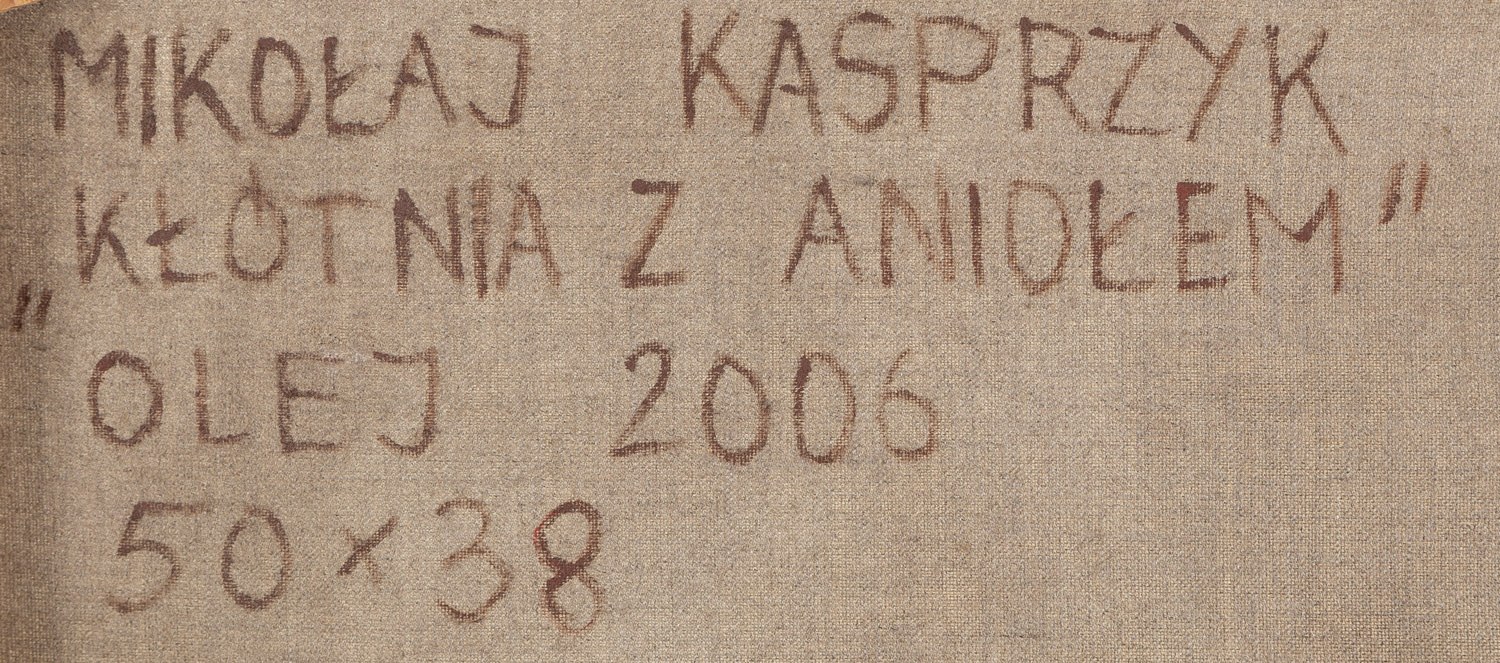 MIKOŁAJ KASPRZYK
„KŁÓTNIA Z ANIOŁEM”
OLEJ 2006
50 × 38